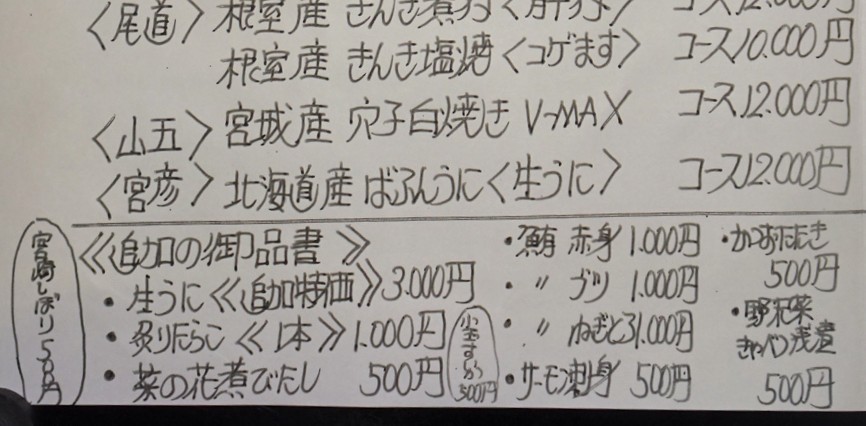 〈尾道〉根室産 きんき煮付 コース12.000円
根室産 きんき塩焼〈コゲます〉 コース10.000円
〈山五〉宮城産 穴子白焼き V-MAX コース12.000円
〈宮彦〉北海道産 ばふんうに〈生うに〉 コース12.000円
≪追加の御品書≫
・生うに≪追加特価≫3.000円
・炙りたらこ≪1本≫1.000円
・菜の花煮びたし 500円
・鮪 赤身 1.000円
・〃 ブツ 1.000円
・〃 ねぎとろ1.000円
・サーモン刺身 500円
・かつおたたき
500円
・野沢菜
きャベツ浅漬
500円
宮崎しぼり50円
500円